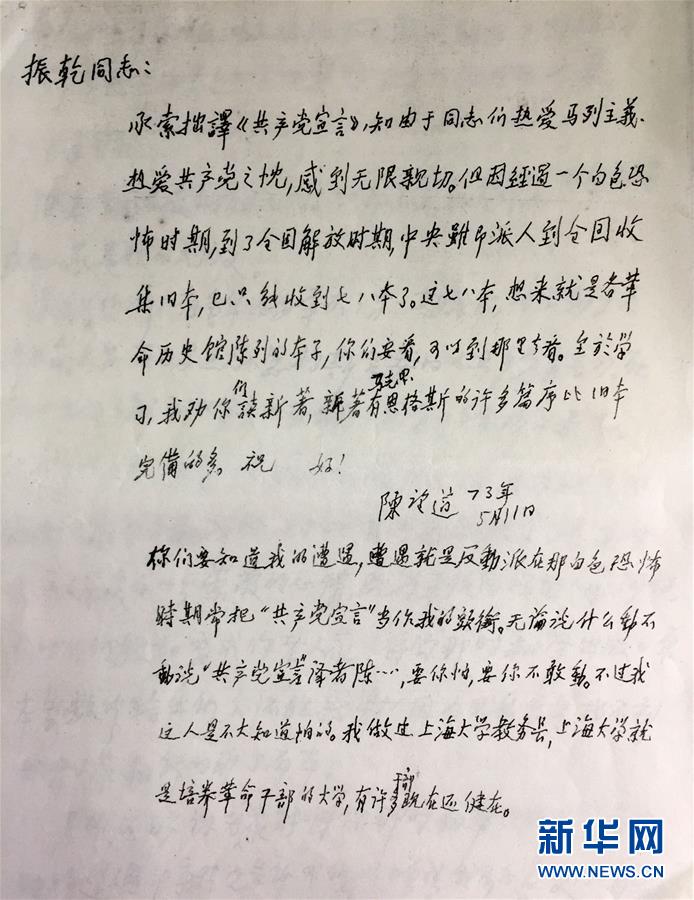 振乾同志：
承索拙譯《共产党宣言》，知由于同志们热爱马列主义、
热爱共产党之忱，感到无限親切。但因經過一个白色恐
怖时期，到了全国解放时期，中央雖即派人到全国收
集旧本，已只能收到七八本了。这七八本，想来就是各革
命历史馆陈列的本子，你们要看，可以到那里去看。至於学
习，我劝你们讀新著，新著有马克思、恩格斯的许多篇序比旧本
完備的多。祝 好！
陳望道 73年
5月11日
你们要知道我的遭遇，遭遇就是反動派在那白色恐怖
時期常把“共产党宣言”当作我的頭銜。无論说什么動不
動说“共产党宣言”译者陈……，要你怕，要你不敢動。不过我
这人是不大知道怕的。我做过上海大学教务長，上海大学就
是培养革命干部的大学，有许多干部现在还健在。
新华网
WWW.NEWS.CN